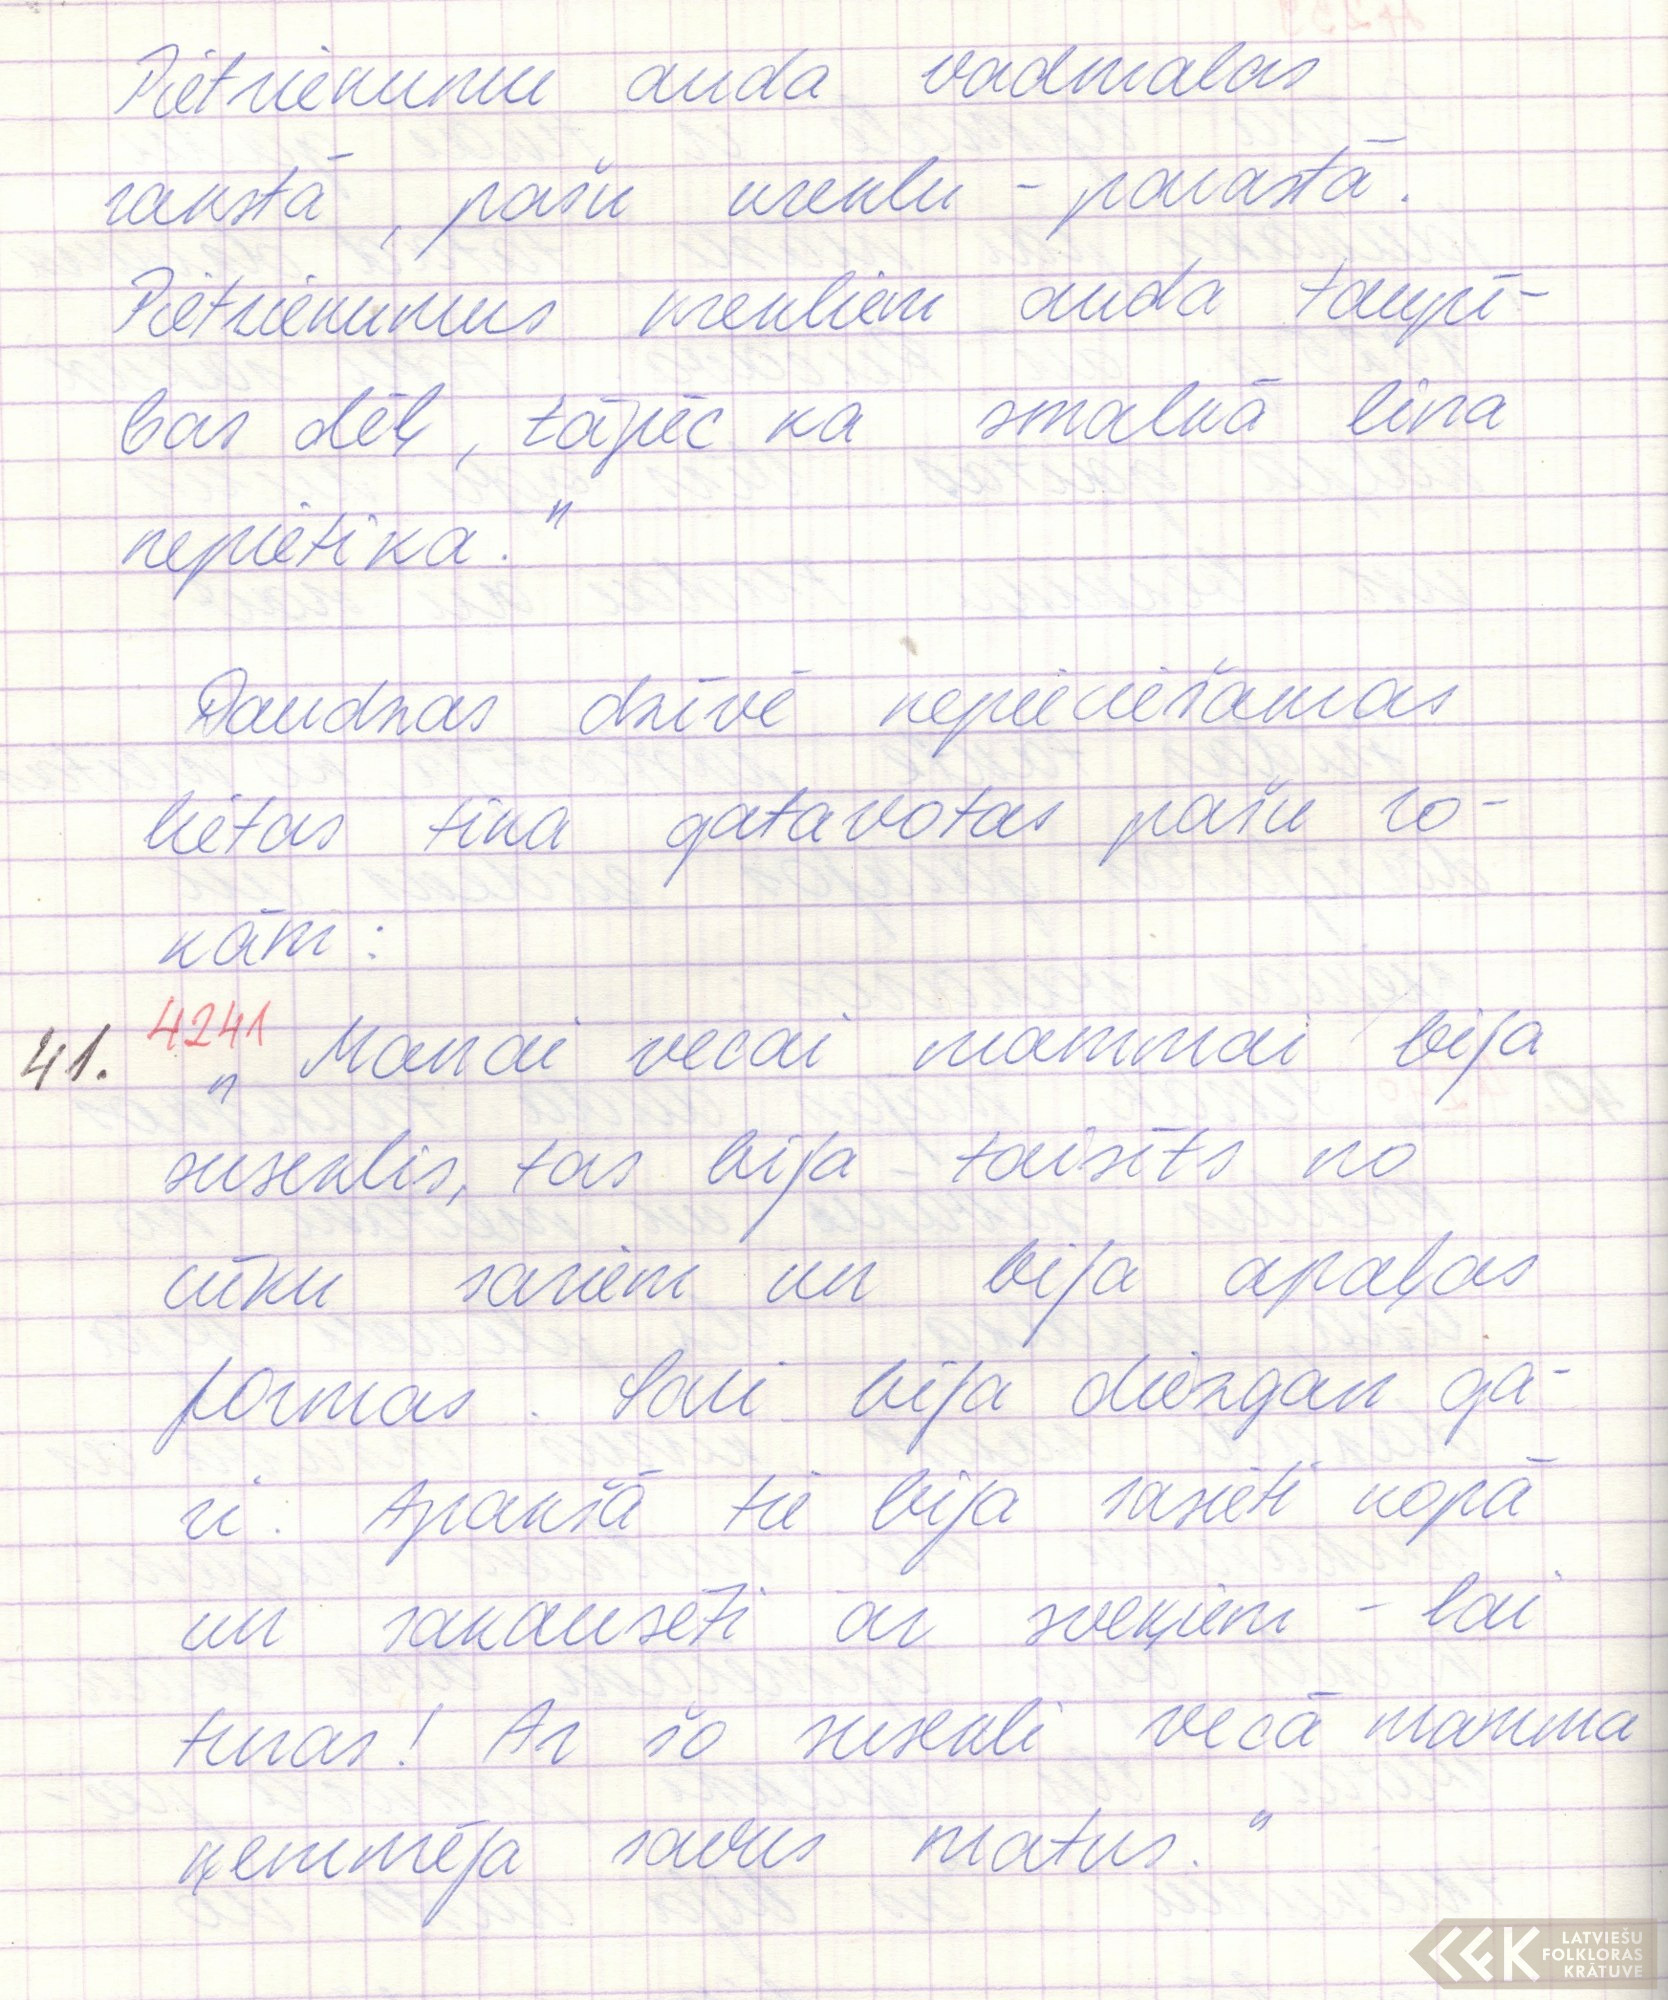 Pietrienumu auda vadmalas
rakstā, pašu kreklu - parastā.
Pietrienumus krekliem auda taupī-
bas dēļ, tāpēc ka smalkā lina
nepietika."
Daudzas dzīvē nepieciešamas
lietas tika gatavotas pašu ro-
kām:
41. 4241 „Manai vecai mammai bija
suseklis, tas bija taisīts no
cūku sariem un bija apaļas
formas. Sari bija diezgan ga-
ri. Apakšā tie bija sasieti kopā
un sakausēti ar sveķiem - lai
turas! Ar šo susekli vecā mamma
ķemmēja savus matus."
LATVIEŠU
FOLKLORAS
KRĀTUVE